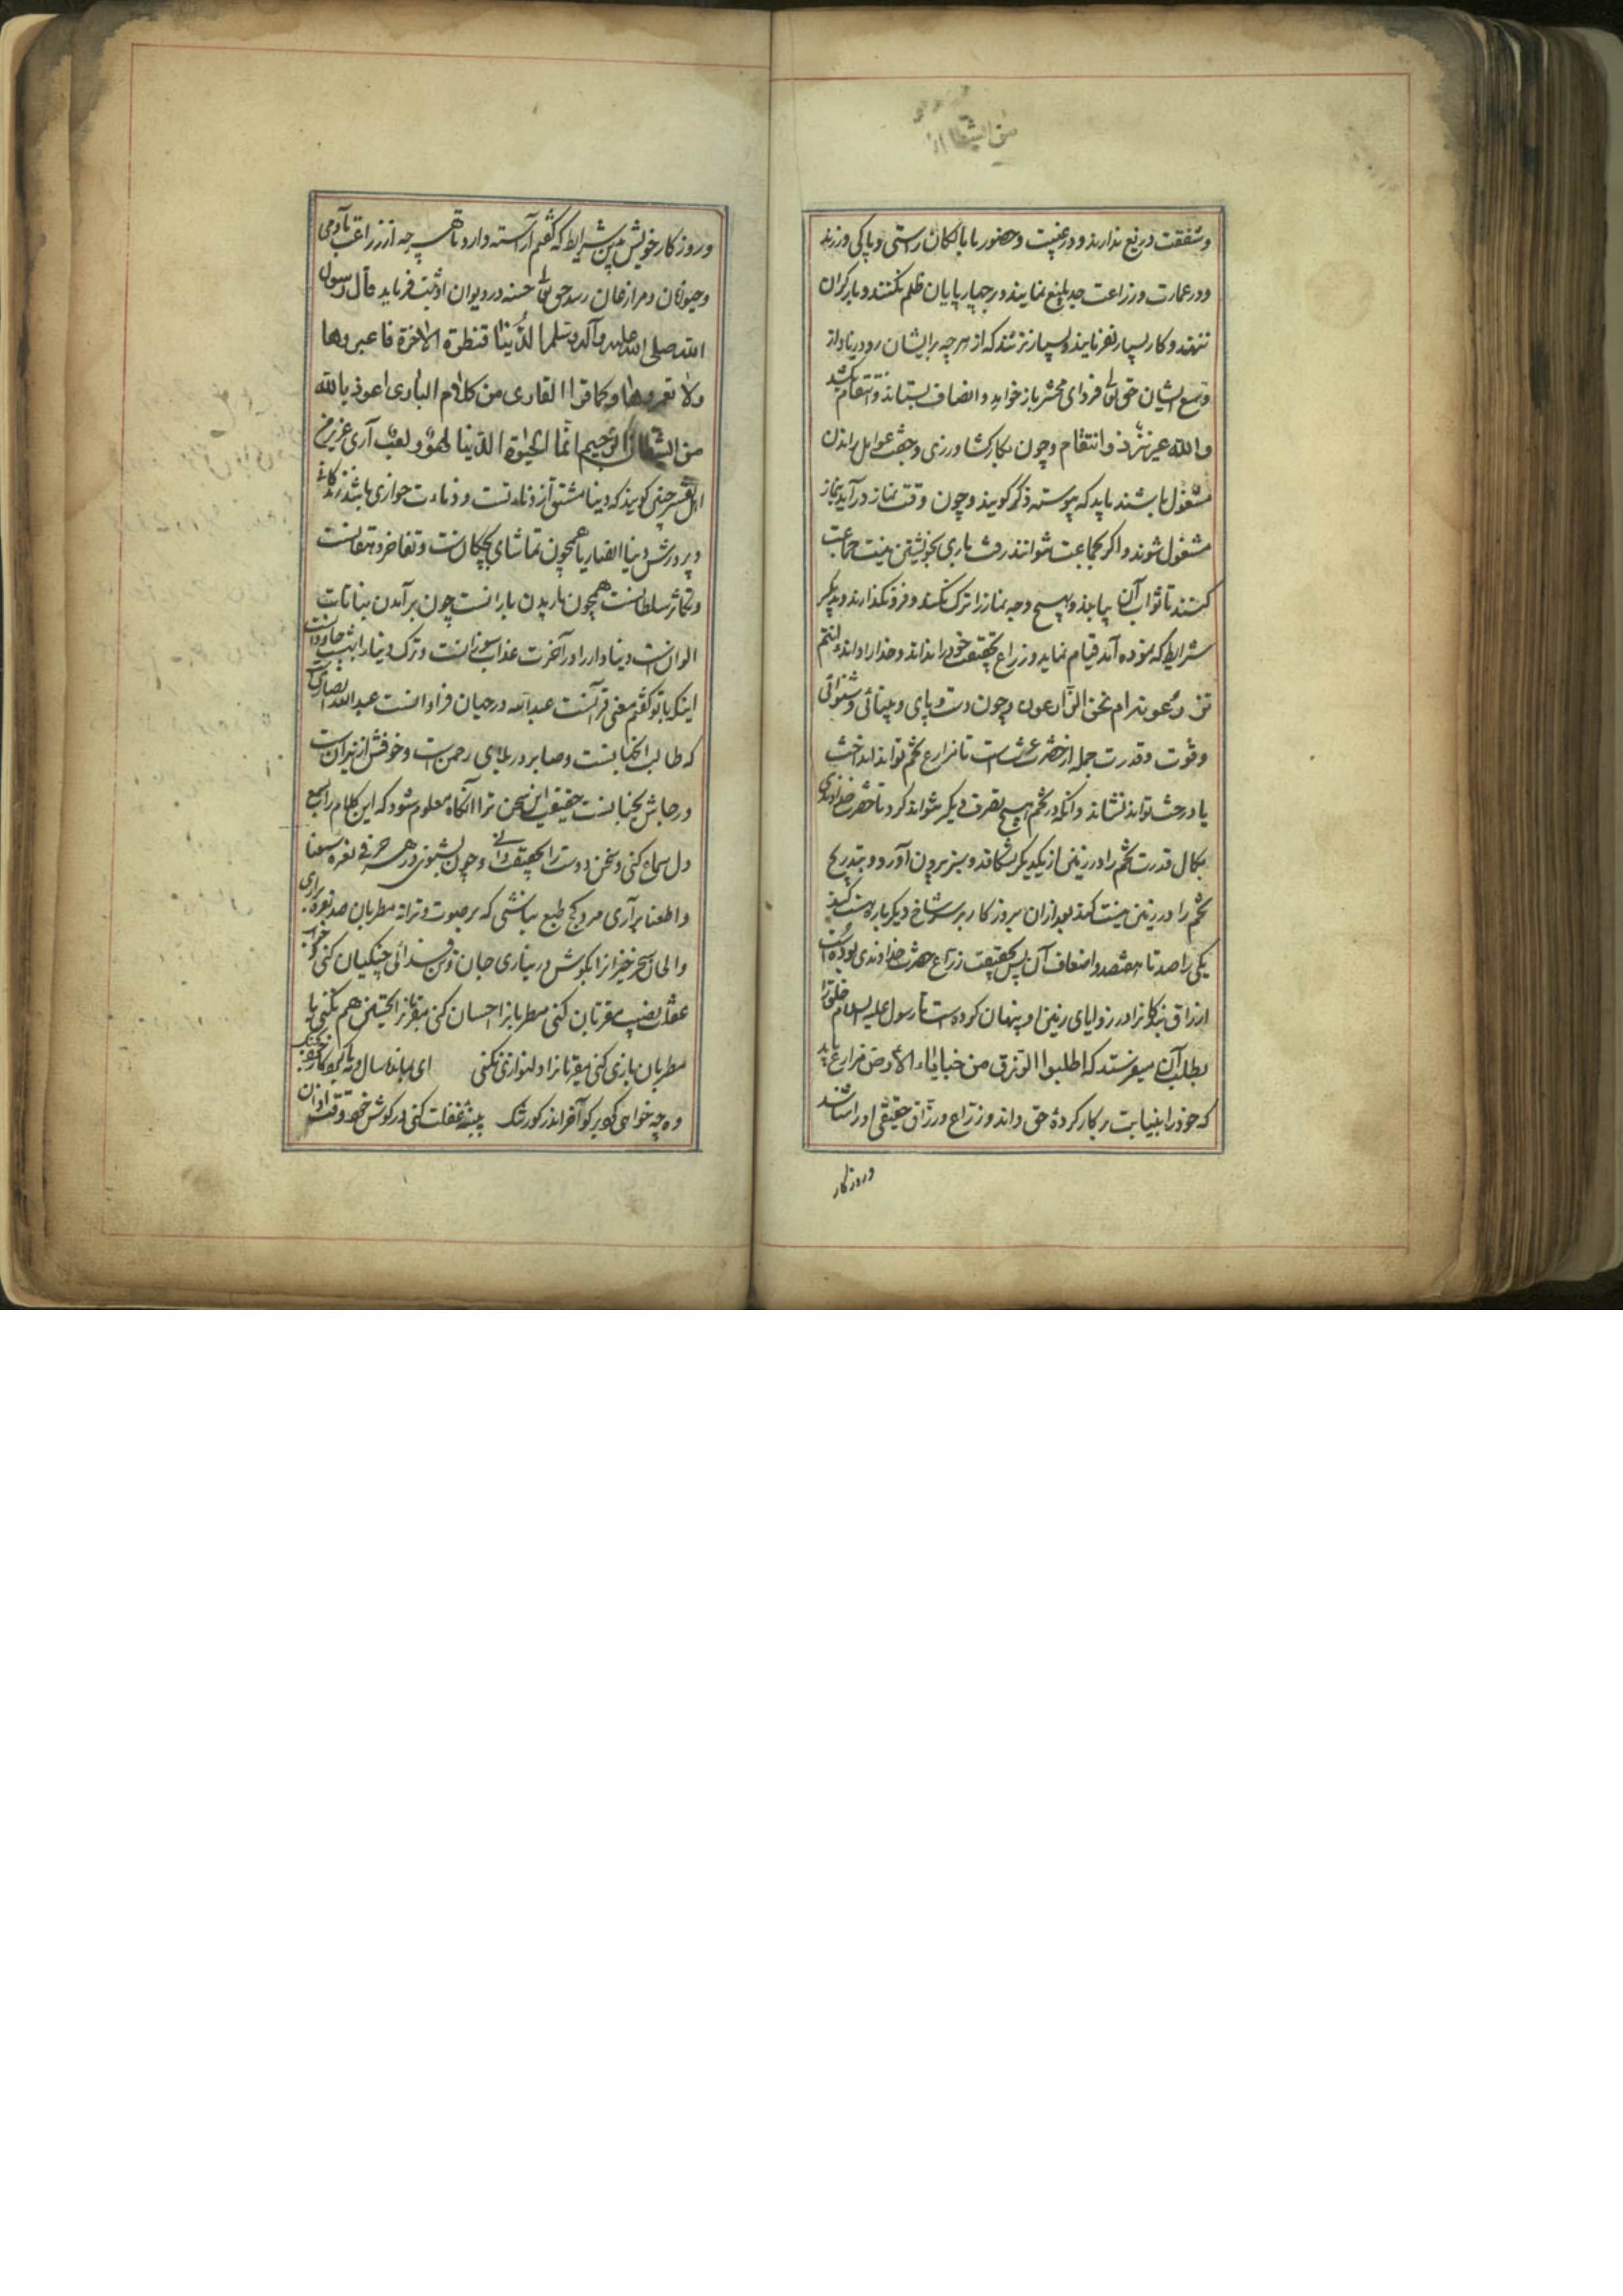 من الشیطان
و شفقت دریغ ندارند و در غیبت و حضور با بالکان راستی و پاکی ورزند
و در عمارت و زراعت جد بلیغ نمایند و بر چهارپایان ظلم نکنند و بار کران
ننهند و کار بسیار نفرمایند و بسیار نزنند که از هر چه بر ایشان رود زیاد از
وسع ایشان حق تعالی فردای محشر باز خواهد و انصاف بستاند و انتقام کشد
والله عزیز ذو انتقام و چون بکار کشاورزی و جفت عوامل راندن
مشغول باشند باید که پیوسته ذکر گویند و چون وقت نماز درآید بنماز
مشغول شوند و اکر بجماعت نتوانند رفت باری بخویشتن نیت جماعت
کنند تا ثواب آن بیابند و بهیچ وجه نماز را ترک نکنند و فرو نکذارند و بدیکر
شرایط که نموده آمد قیام نماید و زراع بحقیقت خود را نداند و خدا را داند ءانتم
تزرعونه ام نحن الزارعون و چون دست و پای و بینائی و شنوائی
و قوت و قدرت جمله از حضرت عزتست تا مزارع تخم تواند انداخت
یا درخت تواند نشاند و آنکه در تخم هیچ تصرف دیکر نتواند کرد تا حضرت خداوندی
بکمال قدرت تخم را در زمین از یکدیکر بشکافد و سبز برون آورد و بتدریج
تخم را در زمین نیست کند بعد از آن بروز کار بر سر شاخ دیکر باره هست کند
یکی را صد تا هفتصد و اضعاف آن پس بحقیقت زراع حضرت خداوندی بوده است
ارزاق بندکانرا در زوایای زمین او پنهان کرده است تا رسول علیه السلام خلق را
بطلب آن میفرستد که اطلبوا الرزق من خبایاء الارض مزارع باید
که خود را بنیابت بر کار کردهٔ حق داند و زراع و رزاق حقیقی او را شناسد
و روزکار
و روزکار خویش بدین شرایط که کفتم آراسته دارد تا هر چه از زراعت بآدمی
و حیوانان و مرازعان رسد حق تعالی حسنه در دیوان او ثبت فرماید قال رسول
الله صلی الله علیه وآله وسلم الدنیا قنطرة الاخرة فاعبروها
ولا تعمروها وکما قرا القاری من کلام الباری اعوذ بالله
من الشیطان الرجیم انما الحیوة الدنیا لهو ولعب آری عزیز من
اهل تفسیر چنین کویند که دنیا مشتق از دناءتست و دناءت خواری باشد زندکانی
و پرورش دنیا همچون تماشای بچکان است و تفاخر دهقانست
و تکاثر سلطانست همچون باریدن بارانست چون برآمدن نباتات
الوان است دنیادار را در آخرت عذاب سوزانست و ترک دنیا را جاودانست
اینکه با تو کفتم معنی قرآنست عبدالله در جهان فراوانست عبدالله انصاری
که طالب جنانست و صابر در بلای رحمن است و خوفش از نیران است
و رجاش بجنانست حقیقت این سخن ترا آنکاه معلوم شود که این کلام را بسمع
دل سماع کنی و سخن دوست را بحقیقت دانی و چون بشنوی در هر حرفی نعره سمعنا
و اطعنا برآری مردک کج طبع نباشی که بر صوت و ترانه مطربان صد نعره برآری
و الحان سحرخیزان را بکوش در نیاری جان و تن فدائی چنکیان کنی
عقل نصیب مقریان کنی مطربانرا احسان کنی مقریانرا تحسین هم نکنی با
مطربان بازی کنی مقریانرا دلنوازی نکنی ای
وه چه خواهی کرد پنبهٔ غفلت کنی در کوش خود وقت اذان